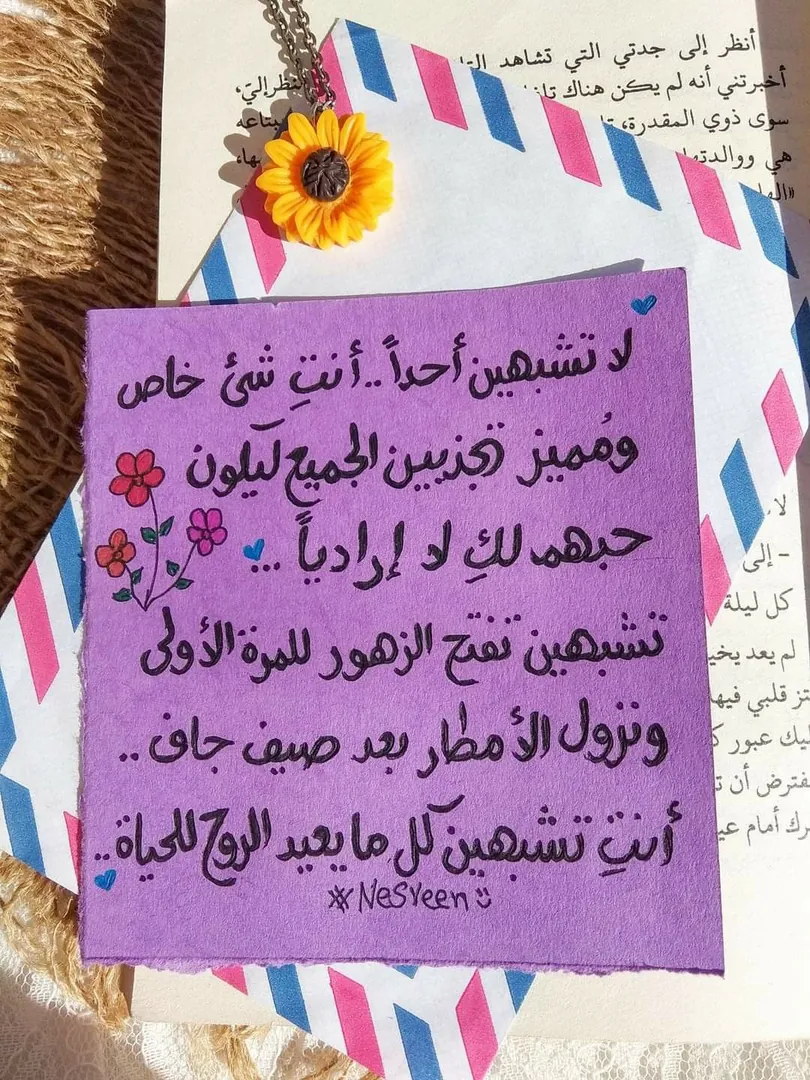 أنظر إلى جدتي التي تشاهد
أخبرتني أنه لم يكن هناك
سوى ذوي المقدرة،
هي ووالدتها
لا تشبهين أحداً .. أنتِ شئ خاص
ومُميز تجذبين الجميع ليكون
حبهم لكِ لا إرادياً ...
تشبهين تفتح الزهور للمرة الأولى
ونزول الأمطار بعد صيف جاف ..
أنتِ تشبهين كل ما يعيد الروح للحياة ..
#Nesreen
- إلى
كل ليلة
لم يعد
قلبي فيها
عبور
أن
أمام